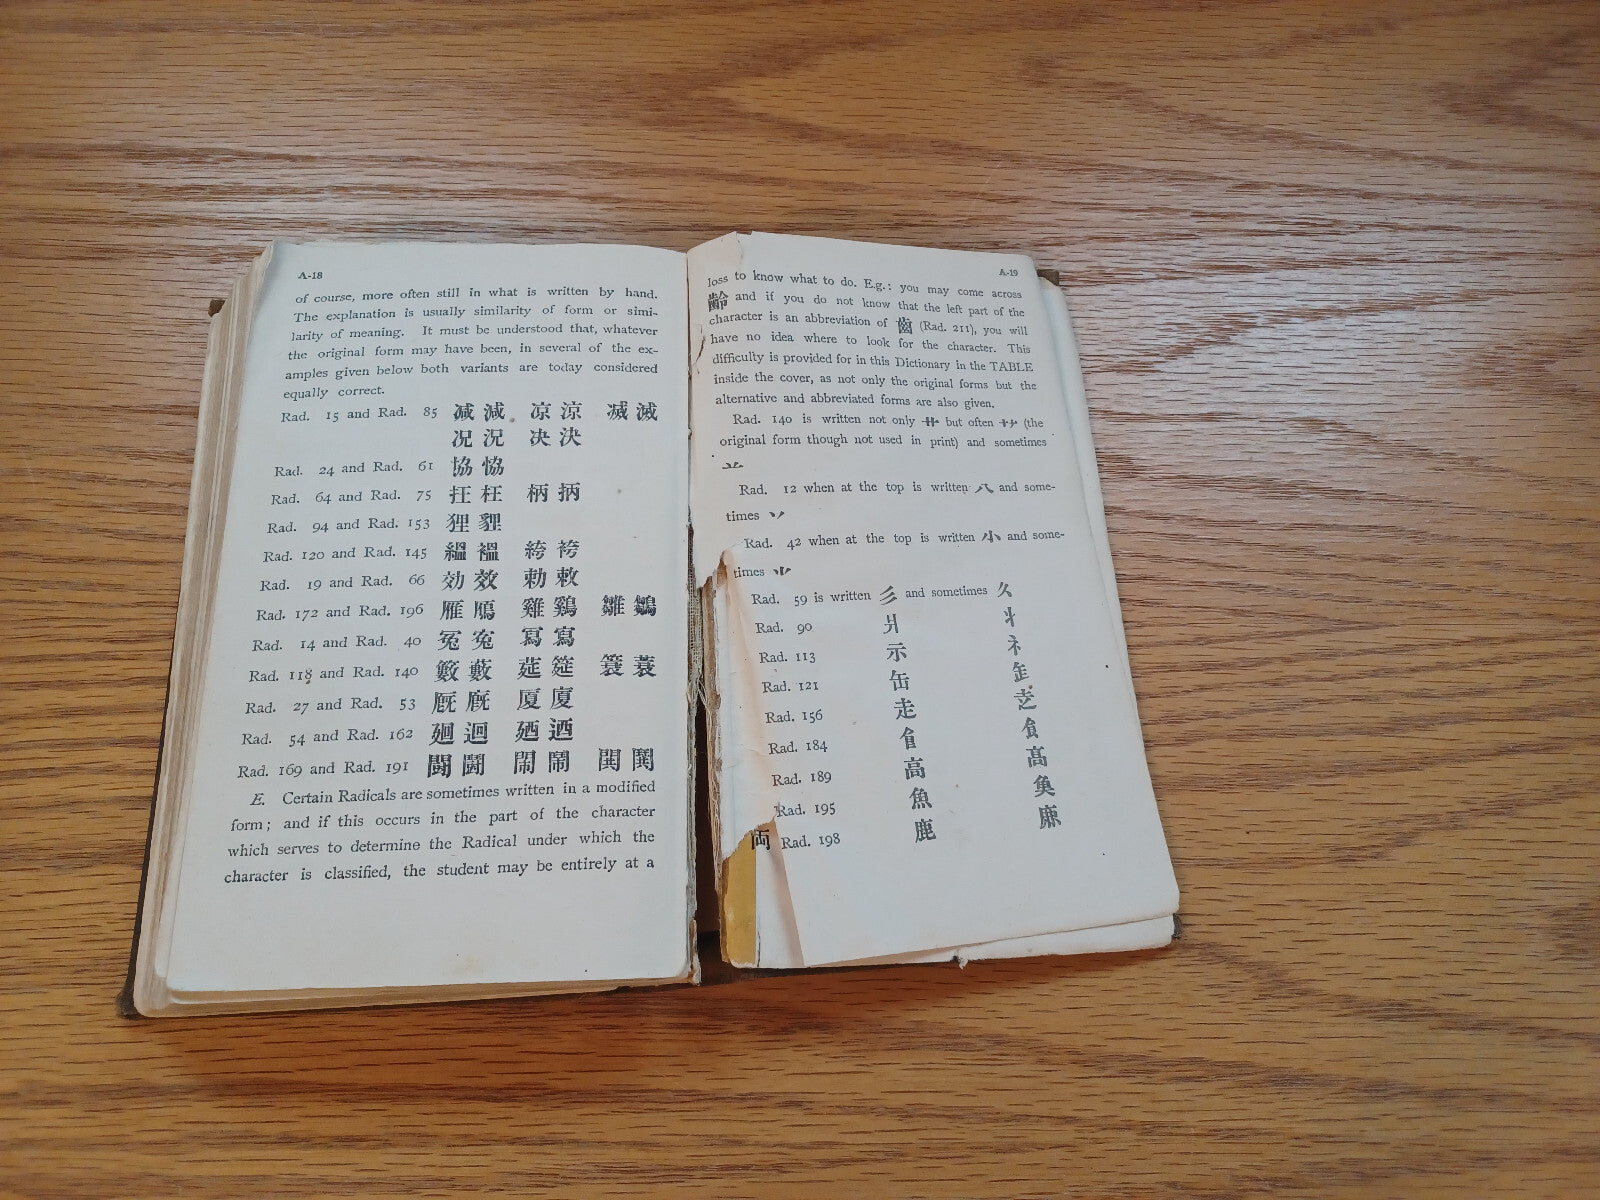 A-18
of course, more often still in what is written by hand.
The explanation is usually similarity of form or simi-
larity of meaning. It must be understood that, whatever
the original form may have been, in several of the ex-
amples given below both variants are today considered
equally correct.
Rad. 15 and Rad. 85 减 減 凉 涼 㓕 滅
况 況 决 決
Rad. 24 and Rad. 61 協 恊
Rad. 64 and Rad. 75 抂 枉 柄 抦
Rad. 94 and Rad. 153 狸 貍
Rad. 120 and Rad. 145 縕 褞 絝 袴
Rad. 19 and Rad. 66 効 效 勅 敕
Rad. 172 and Rad. 196 雁 鴈 雞 鷄 雛 鶵
Rad. 14 and Rad. 40 冤 寃 冩 寫
Rad. 118 and Rad. 140 籔 藪 莚 筵 簑 蓑
Rad. 27 and Rad. 53 厩 廐 厦 廈
Rad. 54 and Rad. 162 廻 迴 廼 迺
Rad. 169 and Rad. 191 闘 鬪 閙 鬧 閧 鬨
E. Certain Radicals are sometimes written in a modified
form; and if this occurs in the part of the character
which serves to determine the Radical under which the
character is classified, the student may be entirely at a
A-19
loss to know what to do. E.g.: you may come across
齡 and if you do not know that the left part of the
character is an abbreviation of 齒 (Rad. 211), you will
have no idea where to look for the character. This
difficulty is provided for in this Dictionary in the TABLE
inside the cover, as not only the original forms but the
alternative and abbreviated forms are also given.
Rad. 140 is written not only but often (the
original form though not used in print) and sometimes
Rad. 12 when at the top is written 八 and some-
times
Rad. 42 when at the top is written 小 and some-
times
Rad. 59 is written 彡 and sometimes 久
Rad. 90 爿 丬
Rad. 113 示 礻
Rad. 121 缶
Rad. 156 走
Rad. 184
Rad. 189 高 髙
Rad. 195 魚
Rad. 198 鹿
両